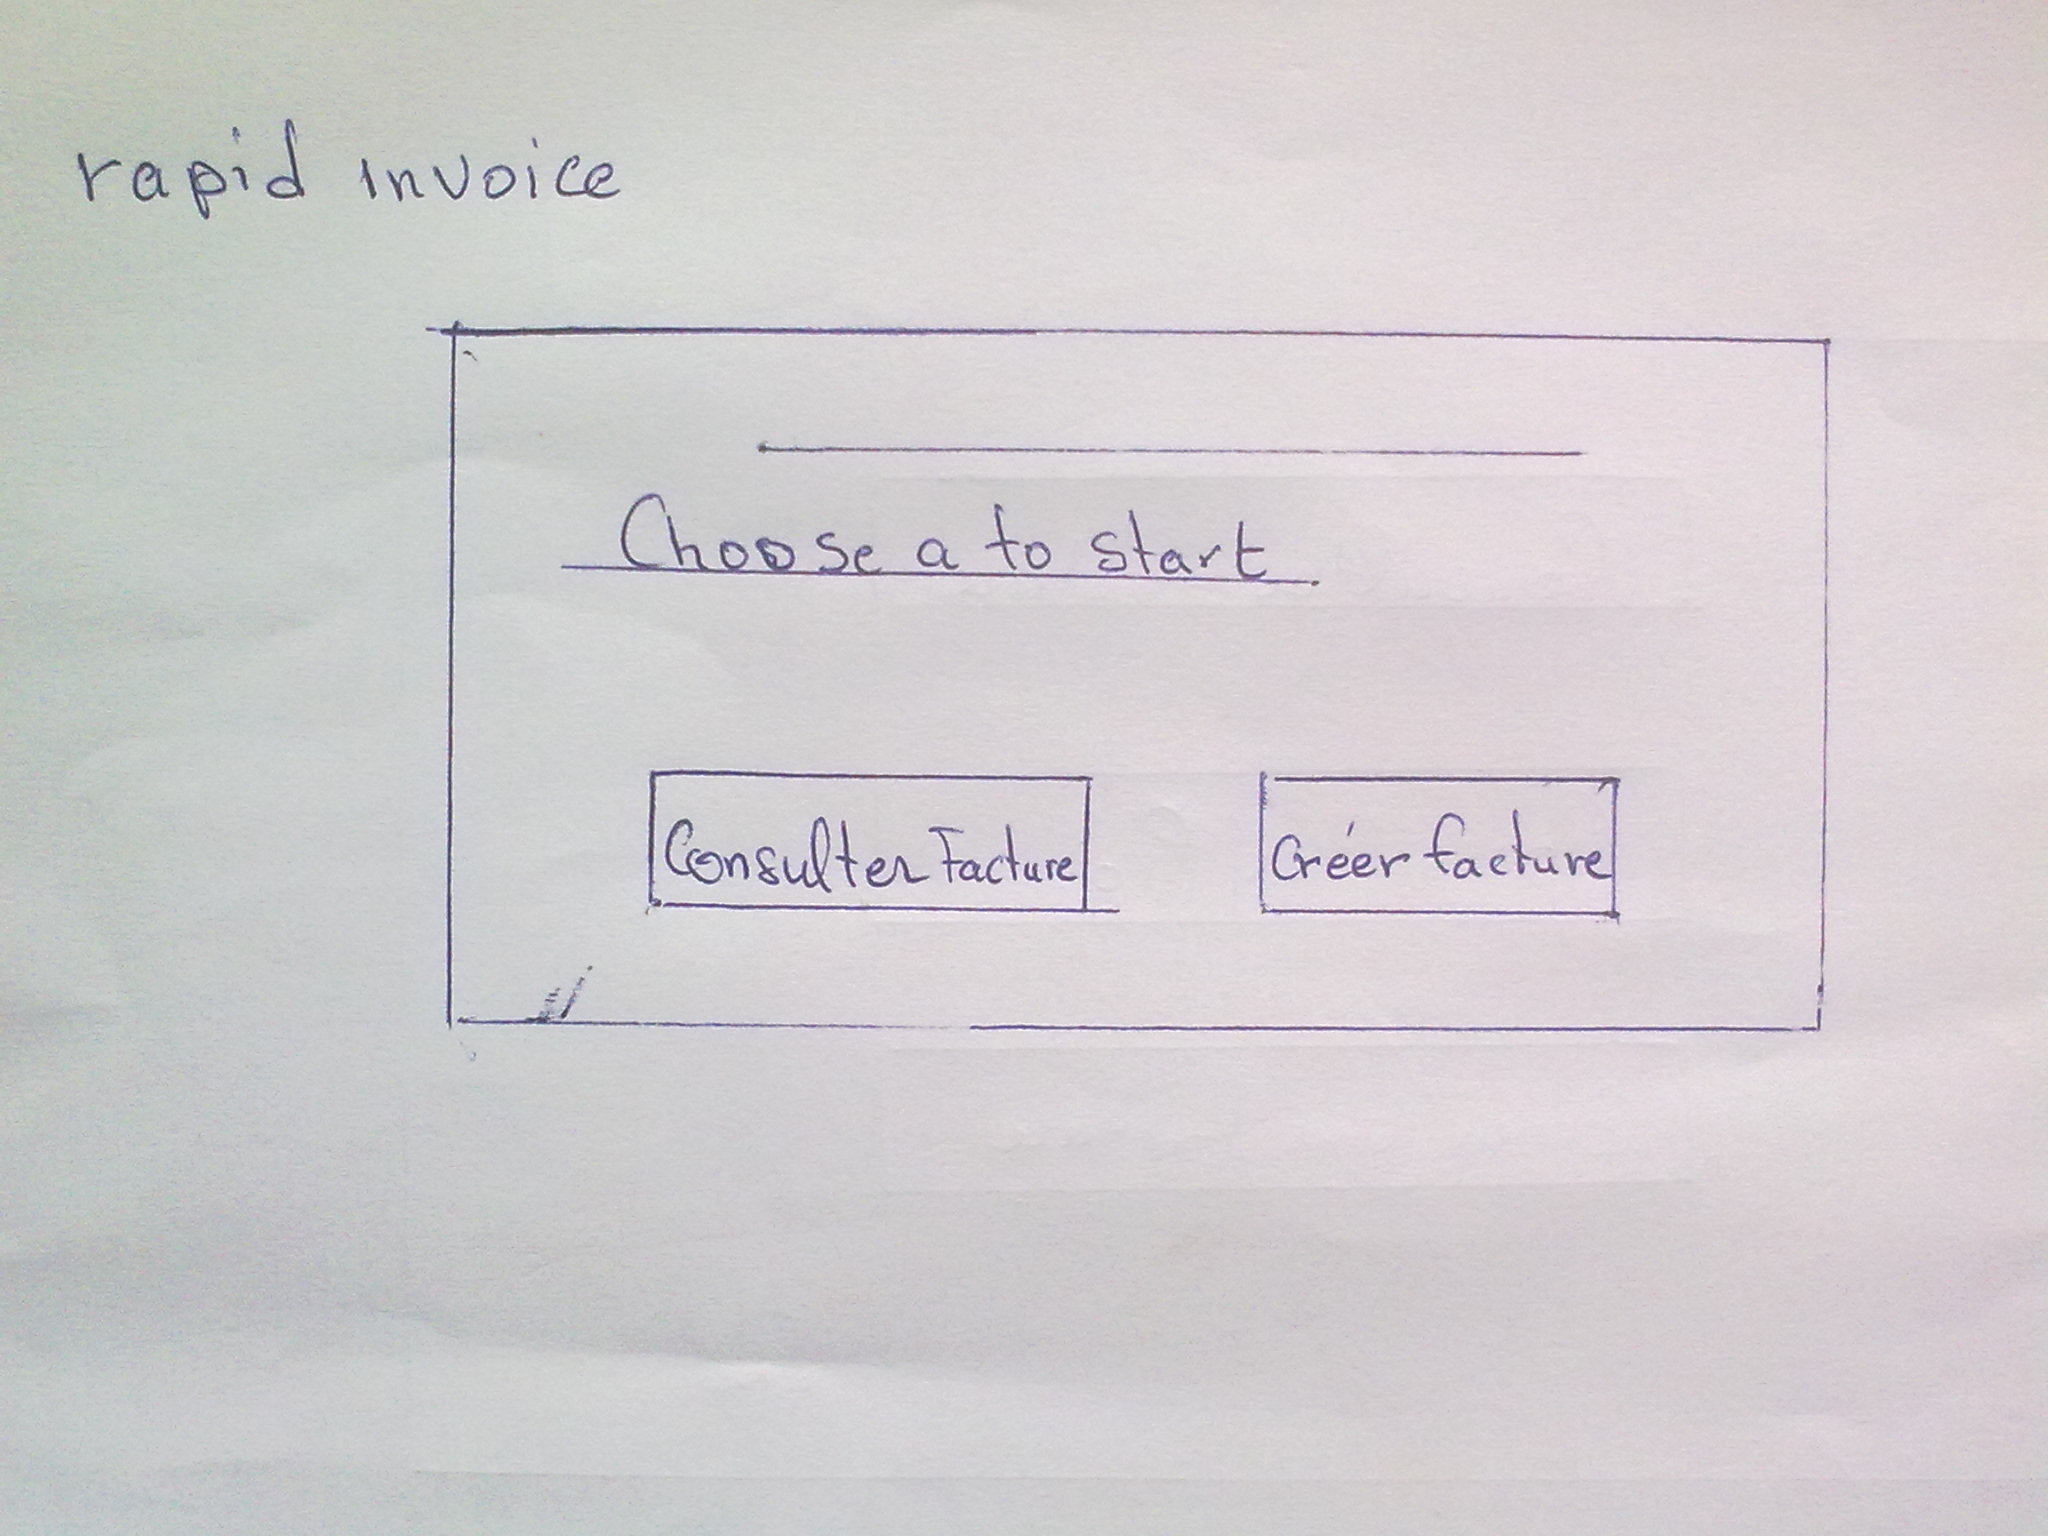 rapid invoice
Choose a to start
Consulter Facture
Créer facture